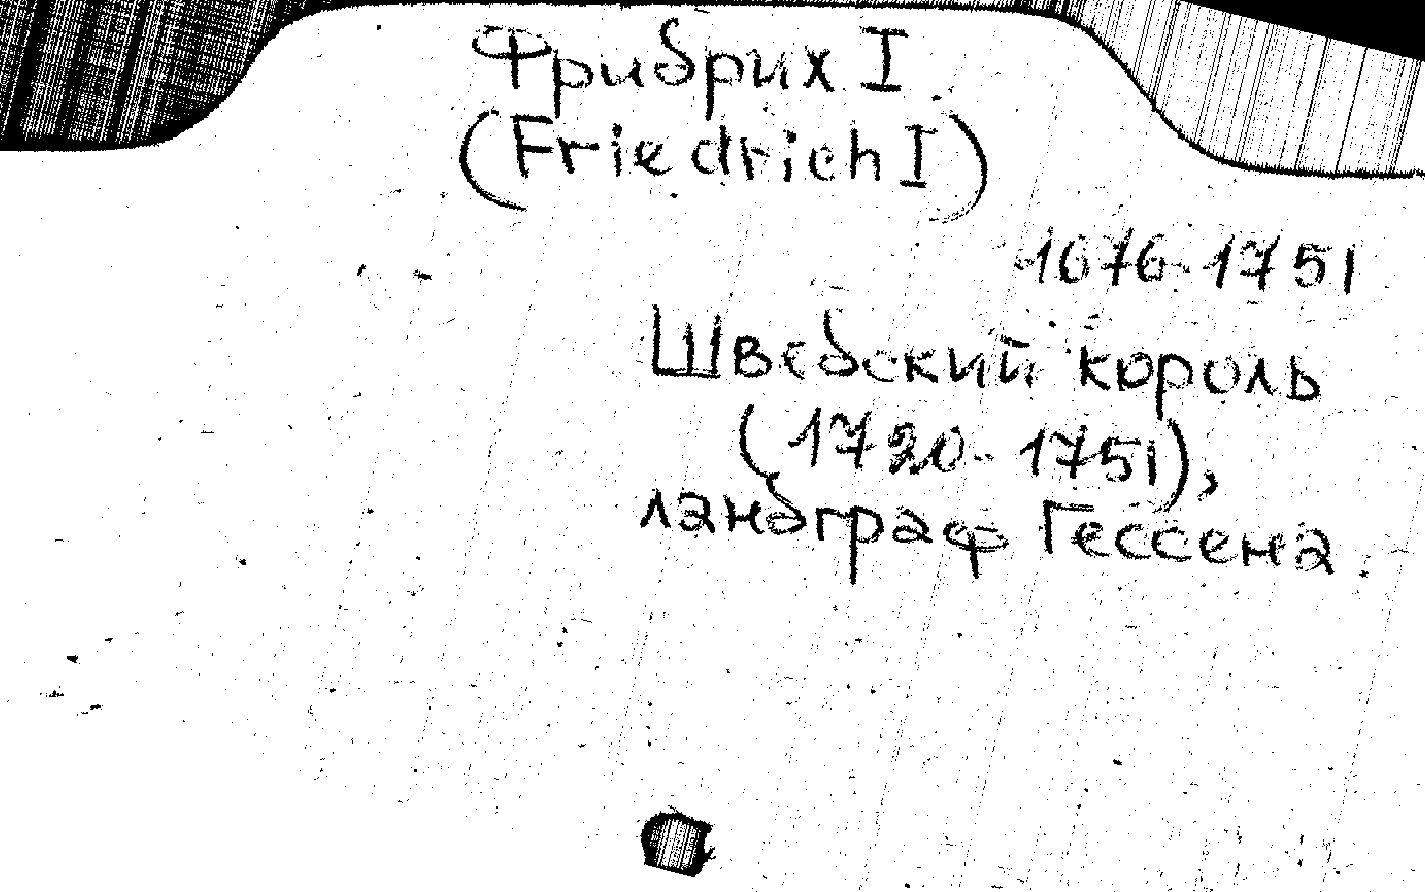 Фридрих I
(Friedrich I)
1676-1751
Шведский король
(1720-1751),
ландграф Гессена.